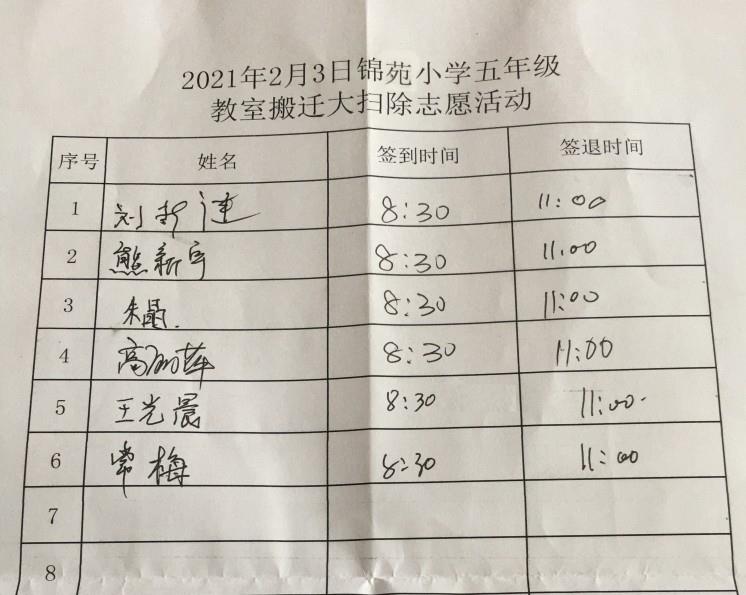 2021年2月3日锦苑小学五年级
教室搬迁大扫除志愿活动
序号 姓名 签到时间 签退时间
1 刘 8:30 11:00
2 熊新宇 8:30 11:00
3 朱晶. 8:30 11:00
4 高丽萍 8:30 11:00
5 王光晨 8:30 11:00
6 常梅 8:30 11:00
7
8